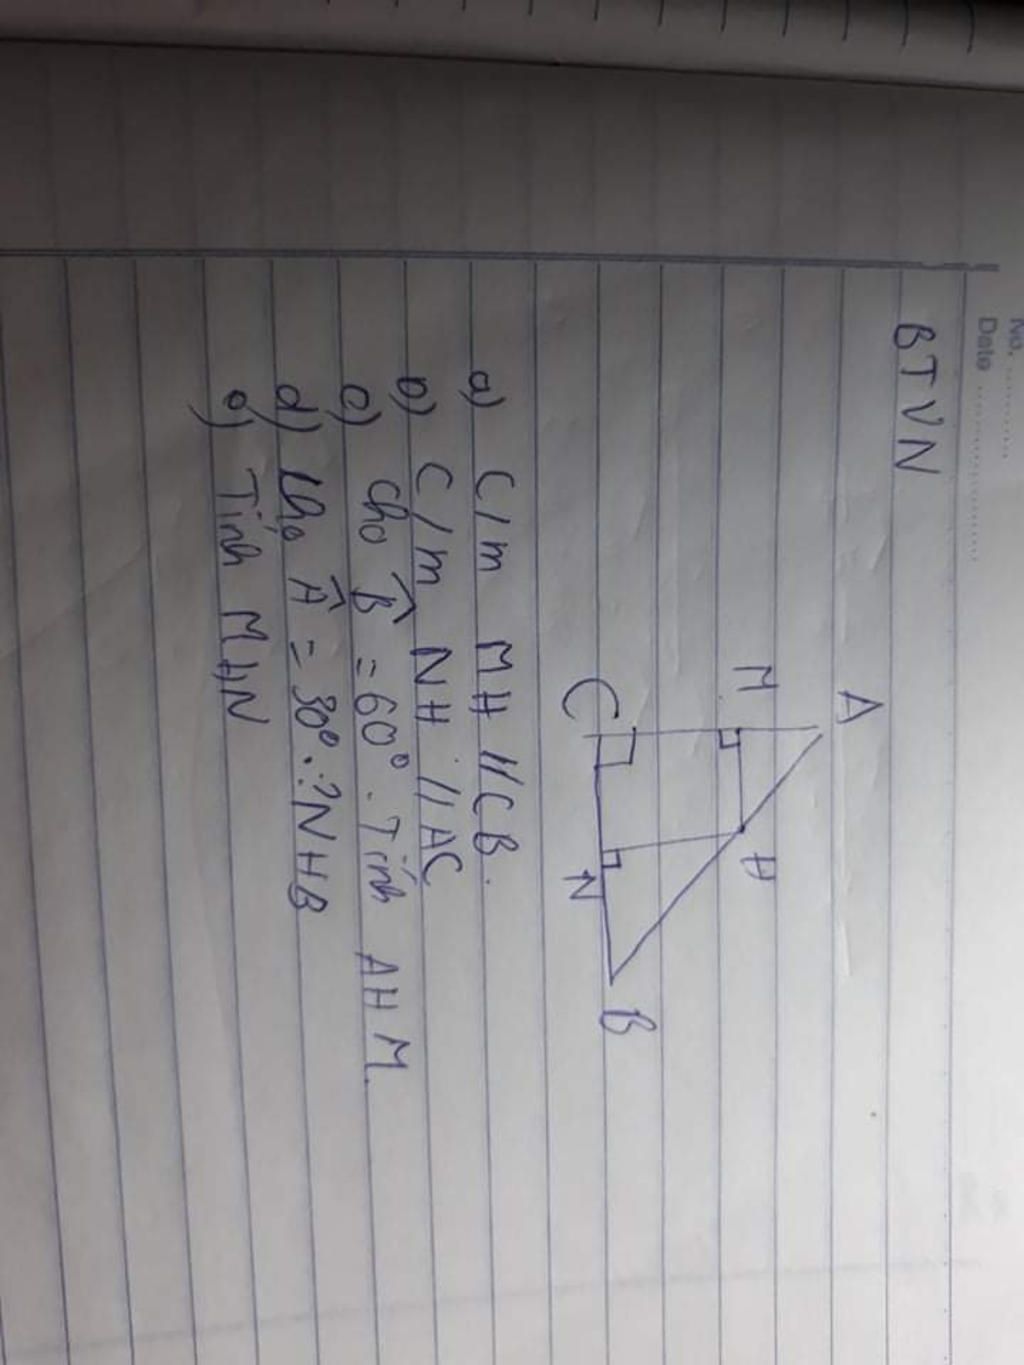 No. ............
Date ........................
BTVN
A
M
H
C
N
B
a) C/m MH // CB.
b) C/m NH // AC
c) Cho B̂ = 60°. Tính AHM.
d) Cho Â = 30°. ? NHB
e) Tính MHN